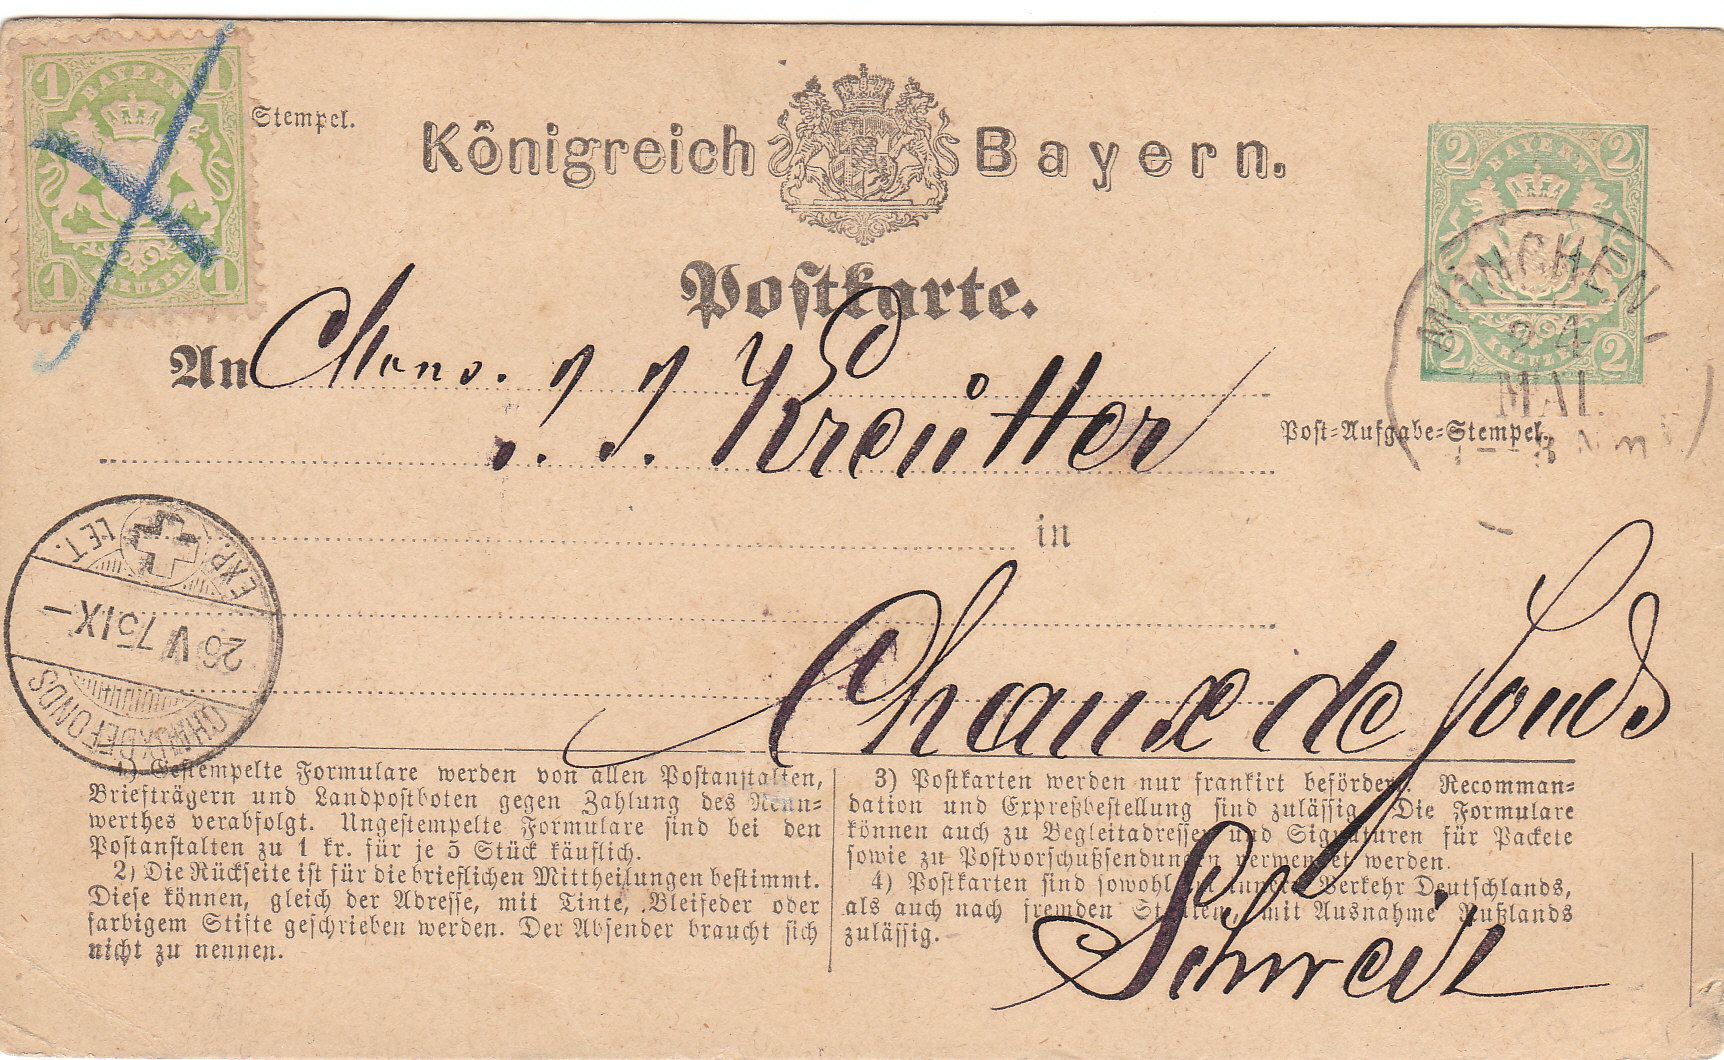 1 BAYERN 1
1 KREUZER 1
Stempel.
Königreich Bayern.
2 BAYERN 2
2 KREUZER 2
MÜNCHEN I
24
MAI.
Postkarte.
An Mons. J. J. Kreütter
Post-Aufgabe-Stempel.
in
EXP. LET.
26 V 75 IX-
CHAUXDEFONDS
Chaux de fonds
Schweiz
1) Gestempelte Formulare werden von allen Postanstalten,
Briefträgern und Landpostboten gegen Zahlung des Nenn-
werthes verabfolgt. Ungestempelte Formulare sind bei den
Postanstalten zu 1 kr. für je 5 Stück käuflich.
2) Die Rückseite ist für die brieflichen Mittheilungen bestimmt.
Diese können, gleich der Adresse, mit Tinte, Bleifeder oder
farbigem Stifte geschrieben werden. Der Absender braucht sich
nicht zu nennen.
3) Postkarten werden nur frankirt befördert. Recomman-
dation und Expreßbestellung sind zulässig. Die Formulare
können auch zu Begleitadressen und Signaturen für Packete
sowie zu Postvorschußsendungen verwendet werden.
4) Postkarten sind sowohl im innern Verkehr Deutschlands,
als auch nach fremden Staaten, mit Ausnahme Rußlands
zulässig.